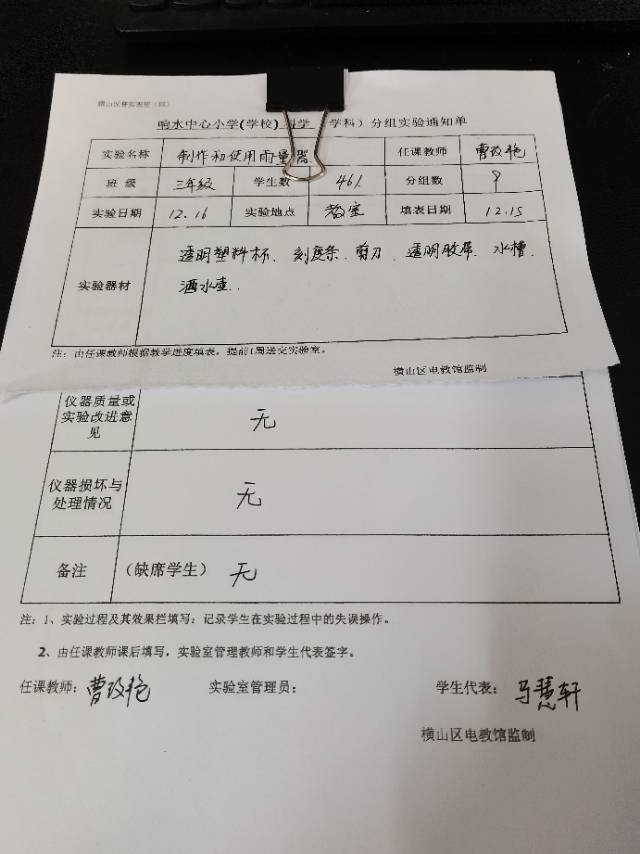 响水中心小学(学校) 科学 (学科)分组实验通知单
实验名称 制作和使用雨量器 任课教师 曹改艳
班 级 三年级 学生数 46人 分组数 9
实验日期 12.16 实验地点 教室 填表日期 12.15
实验器材 透明塑料杯、刻度条、剪刀、透明胶带、水槽、
洒水壶.
注：由任课教师根据教学进度填表，提前1周送交实验室。
横山区电教馆监制
仪器质量或
实验改进意
见
无
仪器损坏与
处理情况
无
备注 (缺席学生) 无
注：1、实验过程及其效果栏填写：记录学生在实验过程中的失误操作。
2、由任课教师课后填写，实验室管理教师和学生代表签字。
任课教师：曹改艳 实验室管理员： 学生代表：马慧轩
横山区电教馆监制